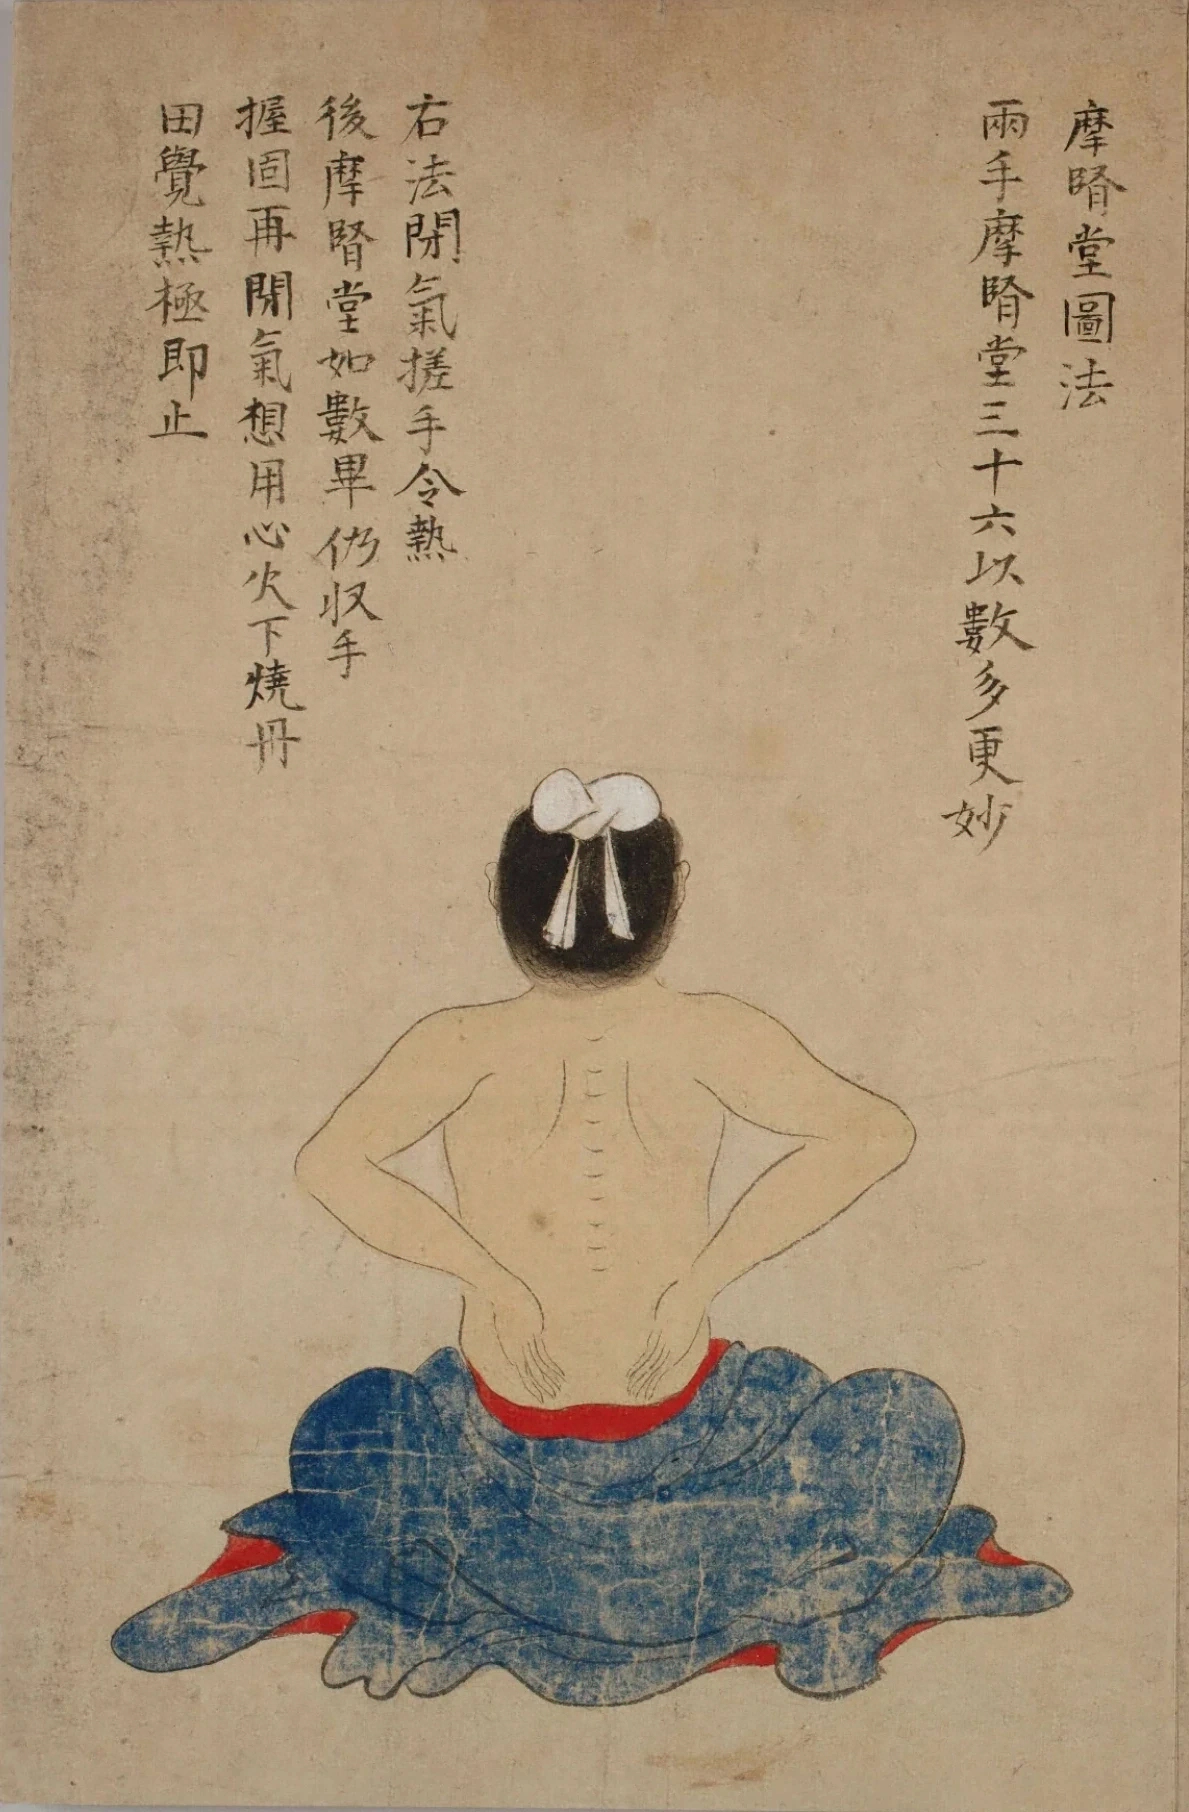 摩腎堂圖法
兩手摩腎堂三十六以數多更妙
右法閉氣搓手令熱
後摩腎堂如數畢仍収手
握固再閉氣想用心火下燒丹
田覺熱極即止